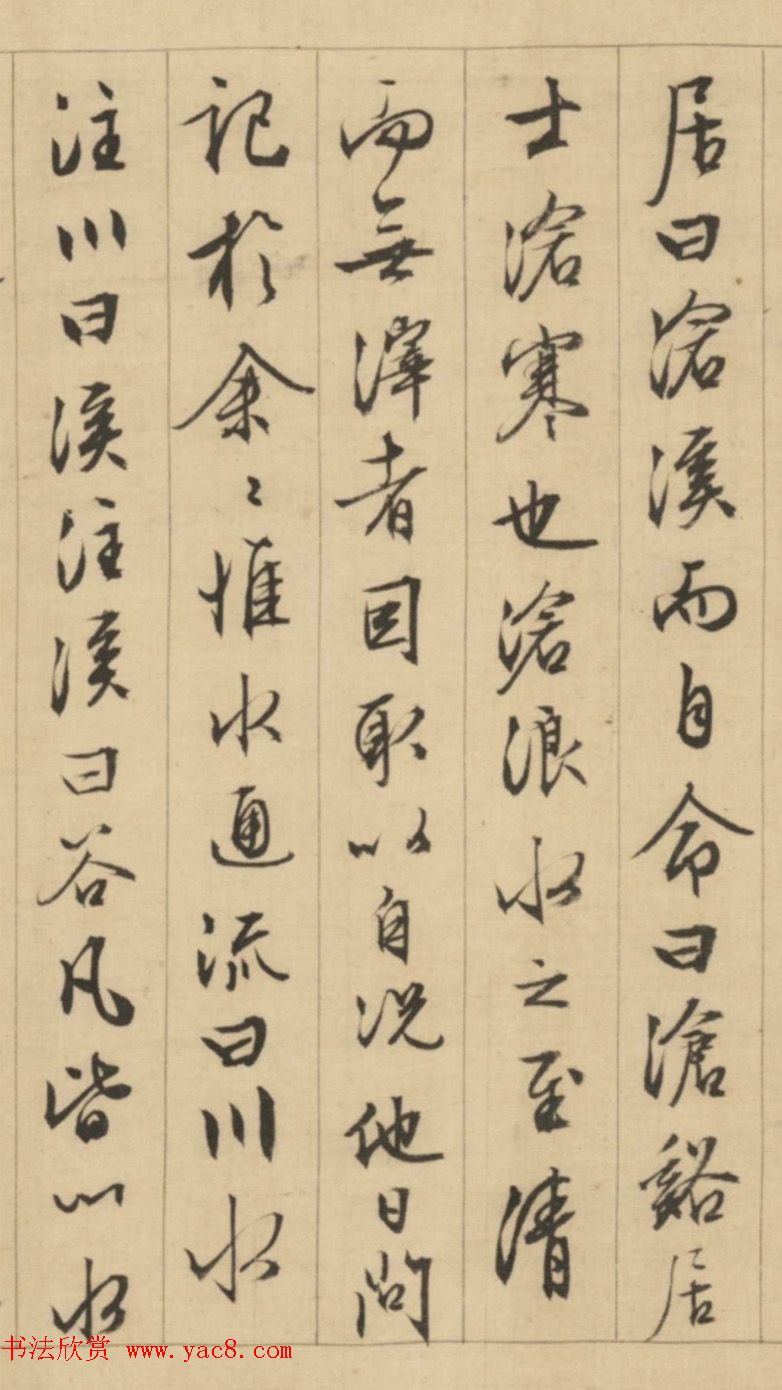 居曰滄溪而自命曰滄谿居
士滄寒也滄浪水之至清
而無滓者因取以自況他日問
記於余〻惟水通流曰川水
注川曰溪注溪曰谷凡皆以水
书法欣赏 www.yac8.com